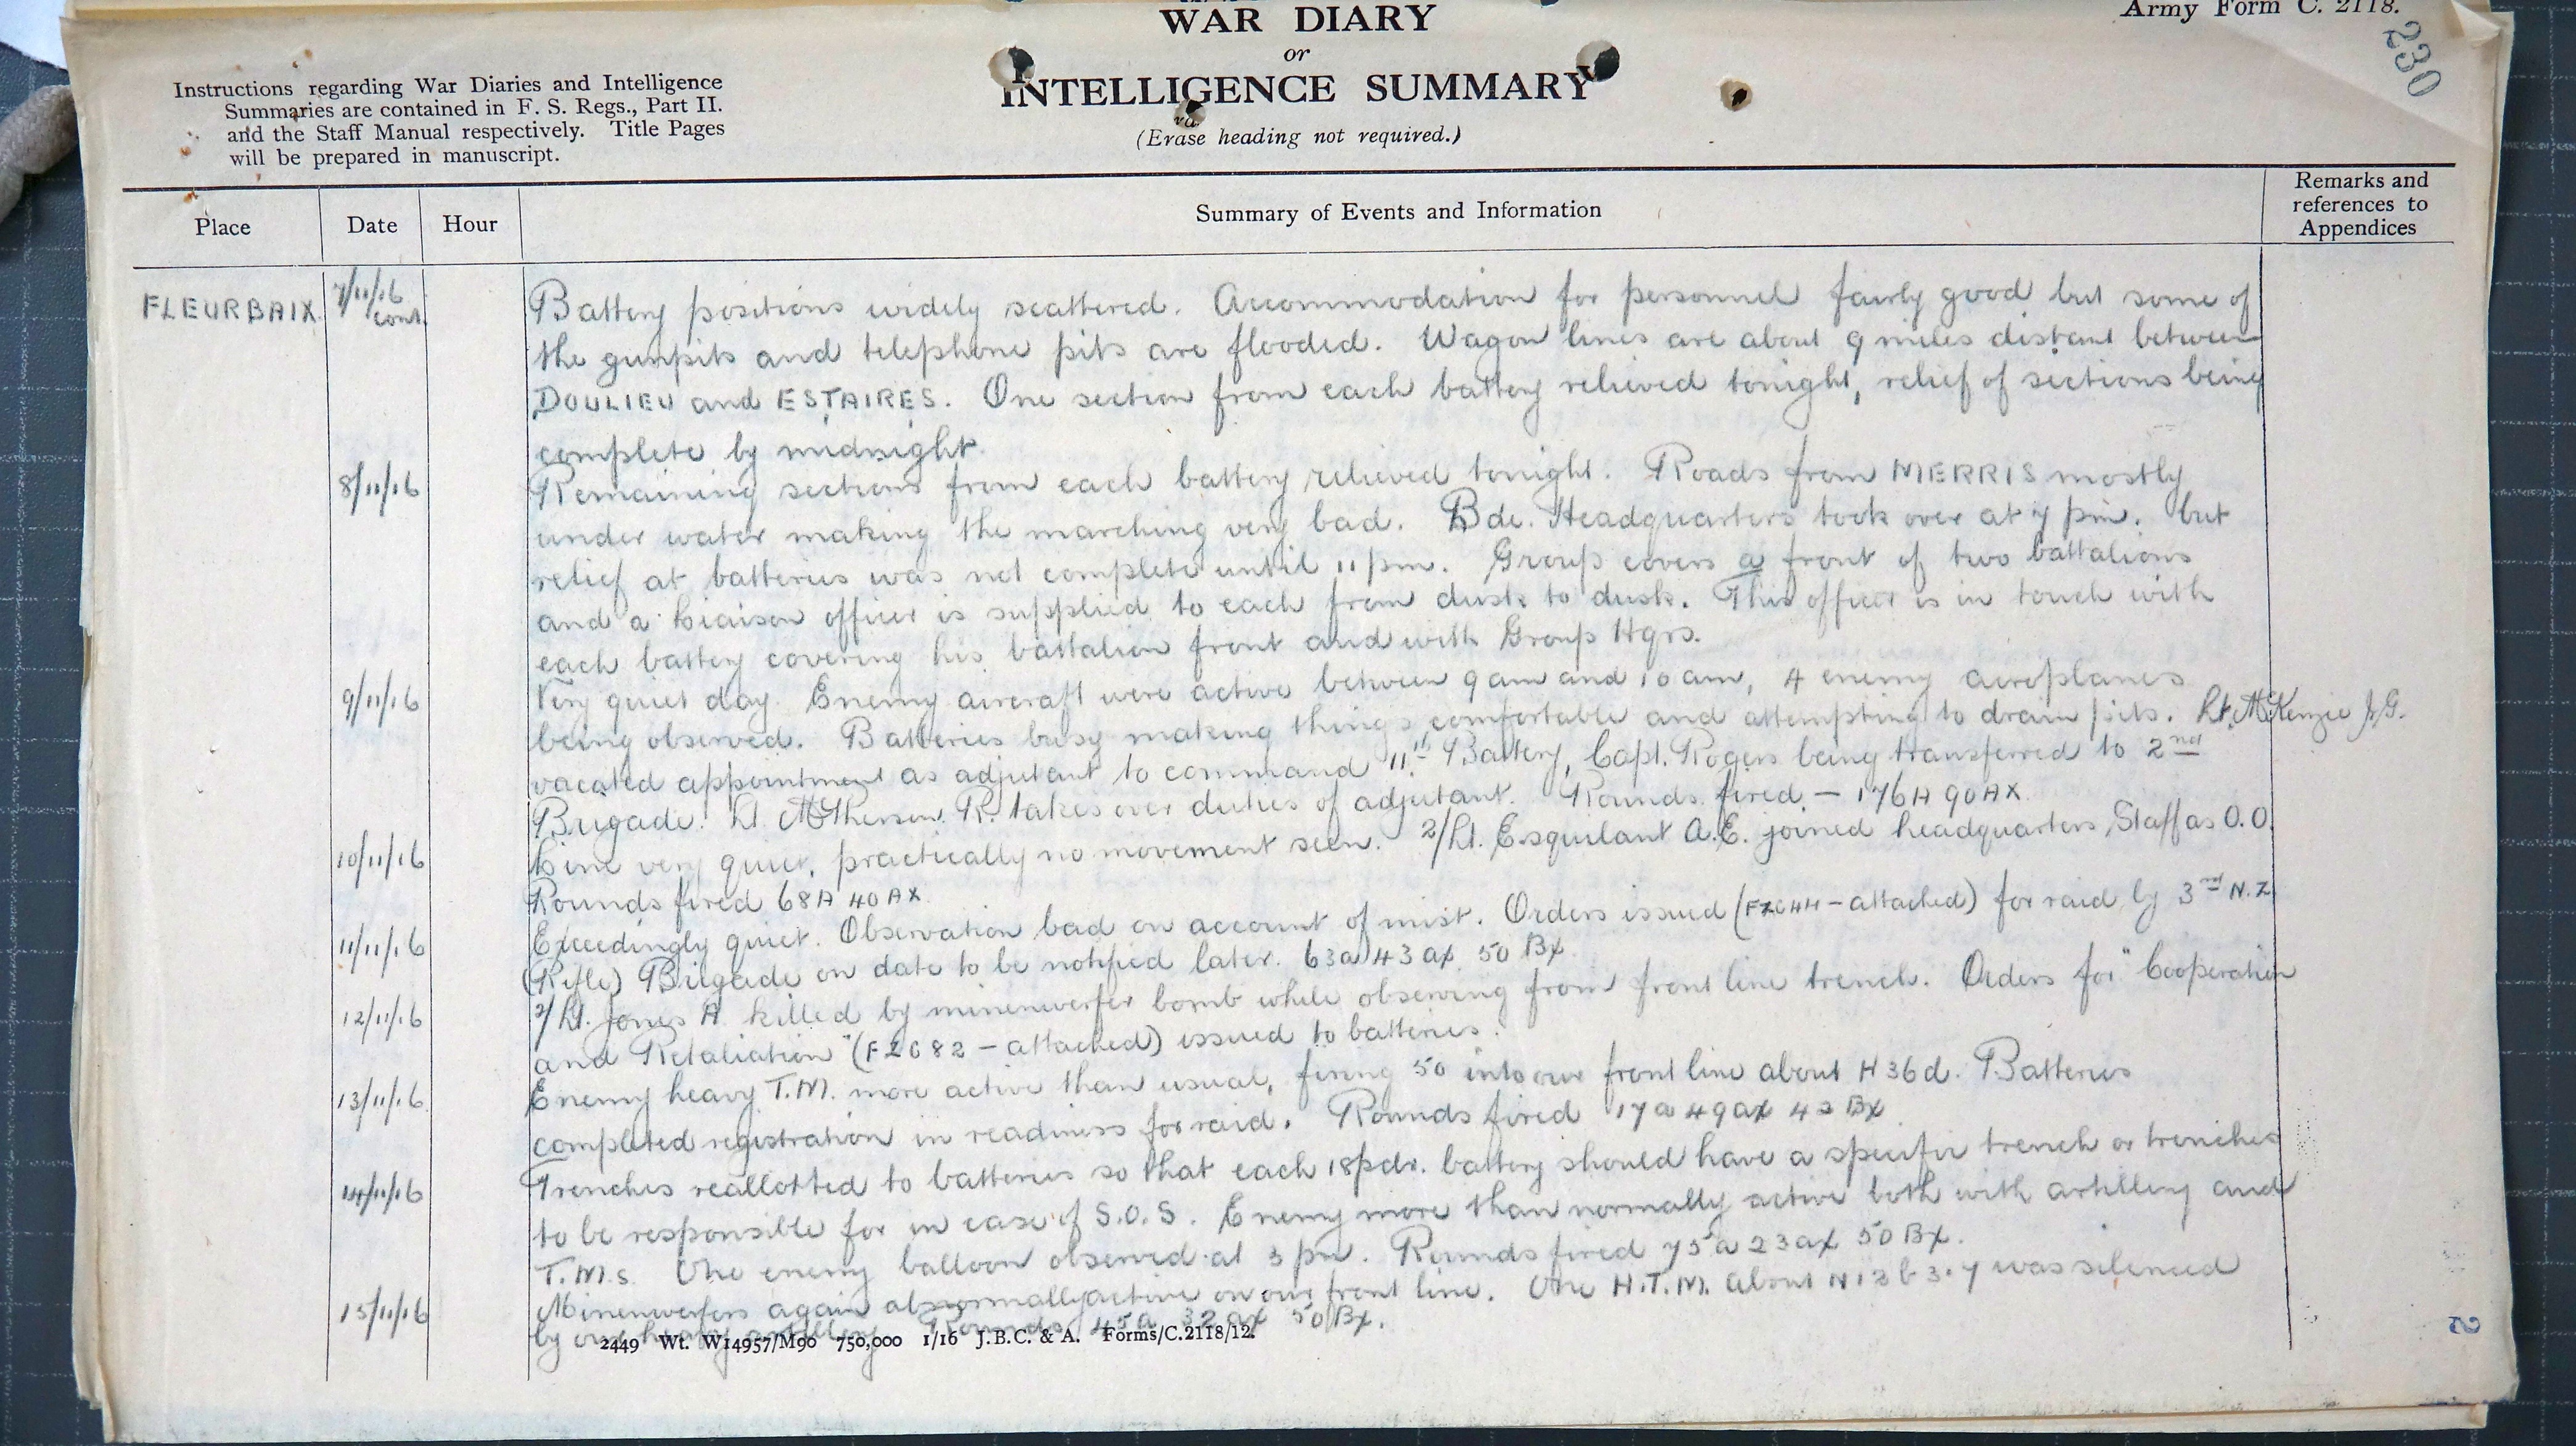 WAR DIARY
Army Form C. 2118.
or
INTELLIGENCE SUMMARY
(Erase heading not required.)
230
Instructions regarding War Diaries and Intelligence
Summaries are contained in F. S. Regs., Part II.
and the Staff Manual respectively. Title Pages
will be prepared in manuscript.
Place Date Hour Summary of Events and Information Remarks and
references to
Appendices
FLEURBAIX 7/11/16 Battery positions widely scattered. Accommodation for personnel fairly good but some of
cont. the gunpits and telephone pits are flooded. Wagon lines are about 9 miles distant between
DOULIEU and ESTAIRES. One section from each battery relieved tonight, relief of sections being
complete by midnight.
8/11/16 Remaining sections from each battery relieved tonight. Roads from MERRIS mostly
under water making the marching very bad. Bde. Headquarters took over at 7 pm. but
relief at batteries was not complete until 11 pm. Group covers a front of two battalions
and a liaison officer is supplied to each from dusk to dusk. This officer is in touch with
each battery covering his battalion front and with Group Hqrs.
9/11/16 Very quiet day. Enemy aircraft were active between 9 am and 10 am, 4 enemy aeroplanes
being observed. Batteries busy making things comfortable and attempting to drain pits. Lt. McKenzie J.G.
vacated appointment as adjutant to command 11th Battery, Capt. Rogers being transferred to 2nd
Brigade. Lt. McPherson R. takes over duties of adjutant. Rounds fired – 176A 90AX
10/11/16 Line very quiet, practically no movement seen. 2/Lt. Esquilant A.E. joined headquarters Staff as O.O.
Rounds fired 68A 40AX
11/11/16 Exceedingly quiet. Observation bad on account of mist. Orders issued (FZC44 – attached) for raid by 3rd N.Z.
(Rifle) Brigade on date to be notified later. 63a 43 ax 50 Bx
12/11/16 2/Lt. Jones A killed by minenwerfer bomb while observing from front line trench. Orders for "Cooperation
and Retaliation" (FZC82 – attached) issued to batteries.
13/11/16 Enemy heavy T.M. more active than usual, firing 50 into our front line about H36d. Batteries
completed registration in readiness for raid. Rounds fired 17a 49ax 42 Bx
14/11/16 Trenches reallotted to batteries so that each 18pdr. battery should have a specific trench or trenches
to be responsible for in case of S.O.S. Enemy more than normally active both with artillery and
T.M.s. One enemy balloon observed at 3 pm. Rounds fired 75a 23ax 50 Bx.
15/11/16 Minenwerfers again abnormally active on our front line. One H.T.M. about N12 b 3.7 was silenced
by our heavy artillery Rounds 45a 32 ax 50 Bx.
2449 Wt. W14957/M90 750,000 1/16 J.B.C. & A. Forms/C.2118/12.